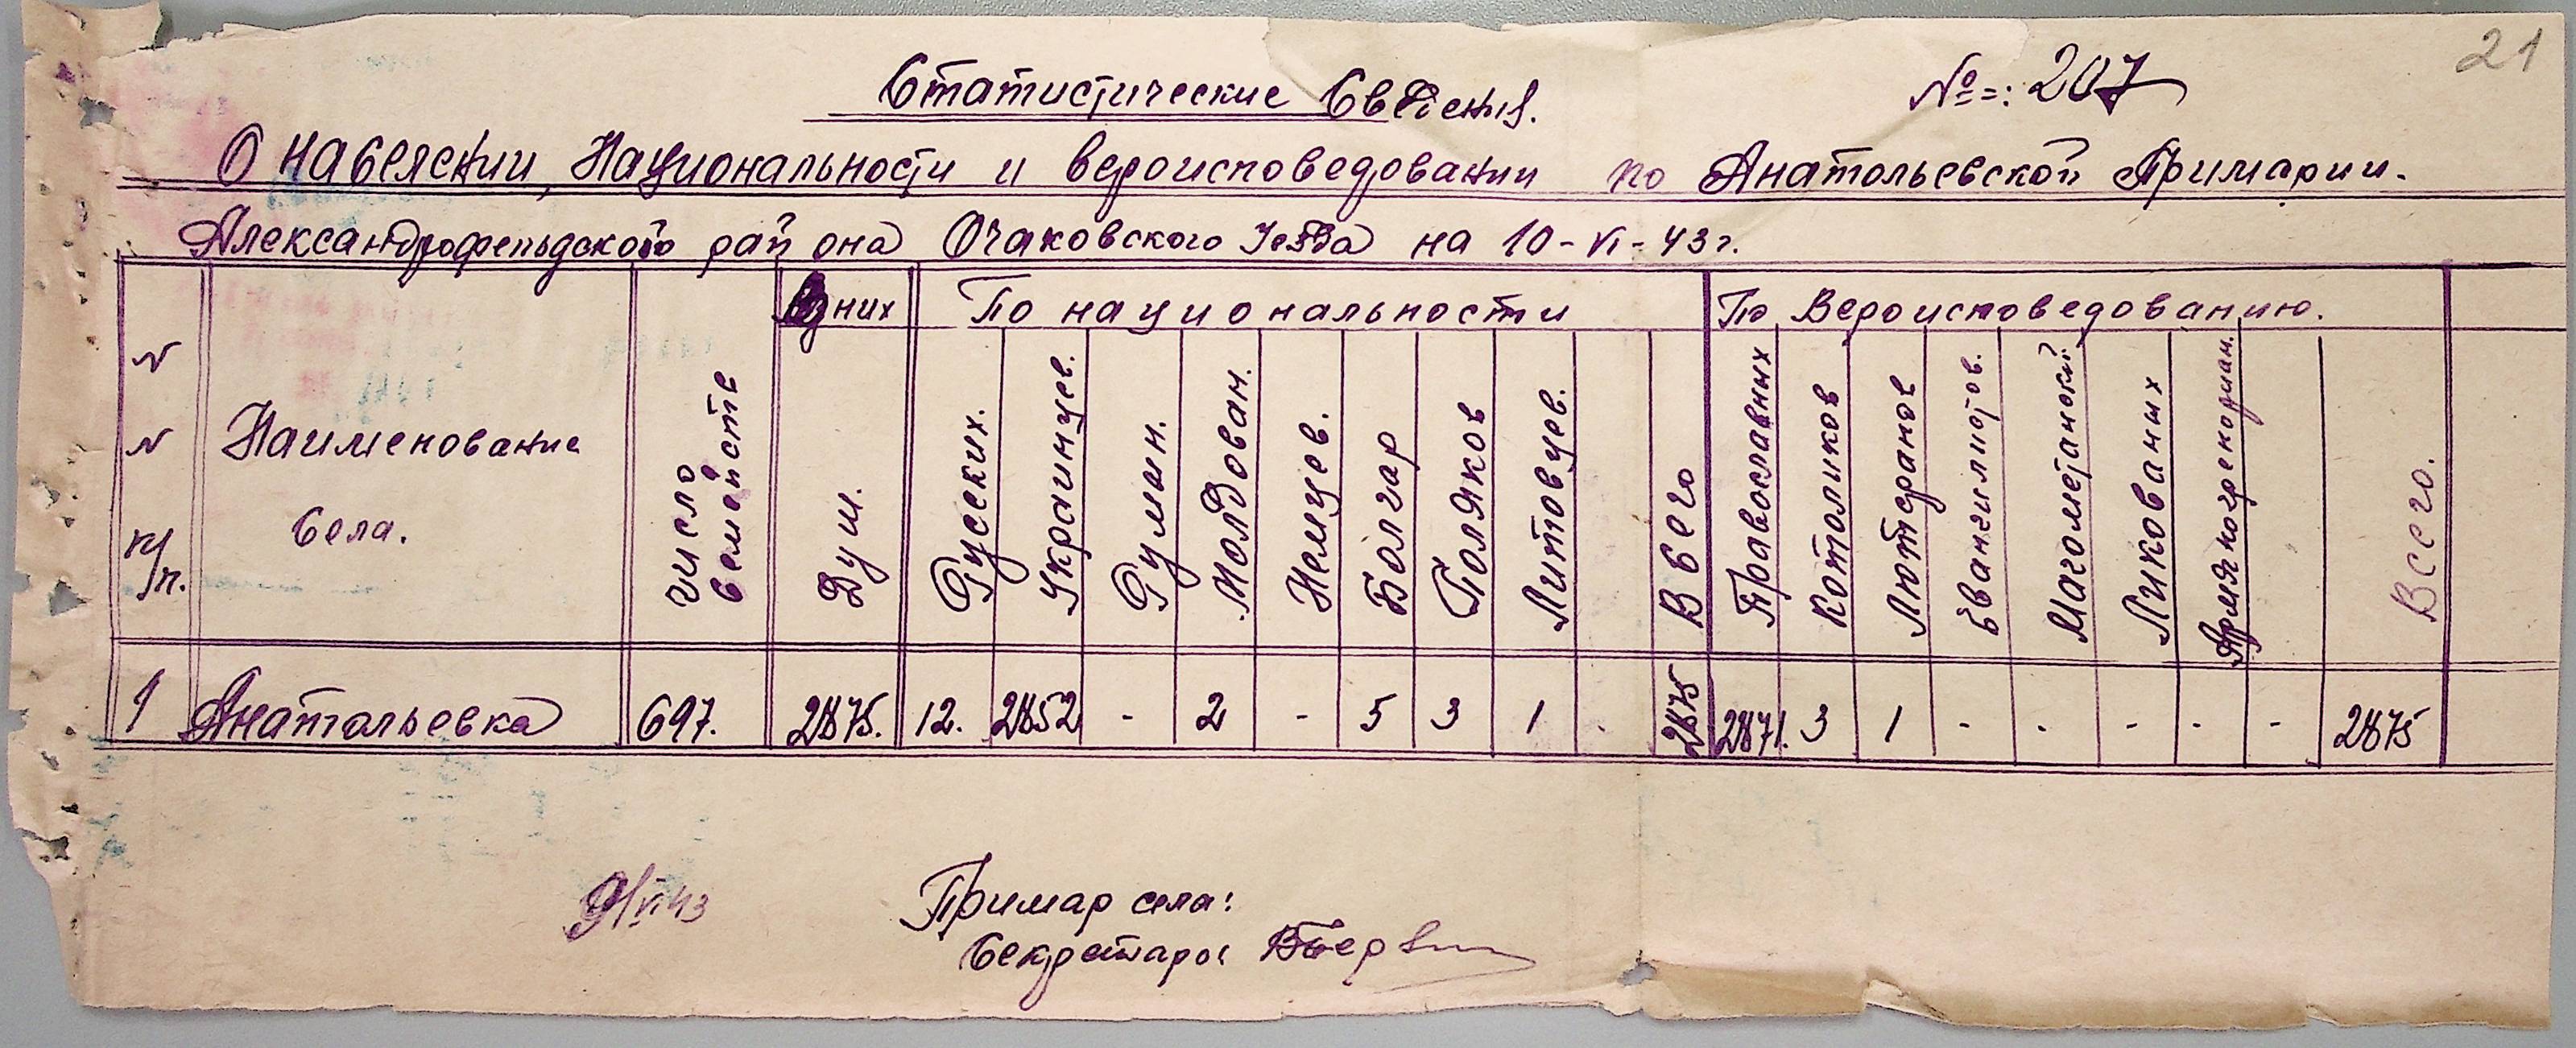 21
Статистические Сведения. №=: 207
О населении, Национальности и вероисповедовании по Анатольевской Примарии.
Александрофельдского района Очаковского Уезда на 10-VI-43 г.
N N п/п.
Наименование Села.
Число Семейств
Из них
Душ.
По национальности
Русских.
Украинцев.
Румын.
Молдован.
Немцев.
Болгар
Поляков
Литовцев.
Всего
По Вероисповедованию.
Православных
Котоликов
Лютеранов
Евангилистов.
Магометанской
Ликованых
Армяногрекориан.
Всего.
1 Анатольевка 697. 2875. 12. 2852 - 2 - 5 3 1 . 2875 2871. 3 1 - - - - - 2875
9/VI 43
Примар села:
Секретарь: